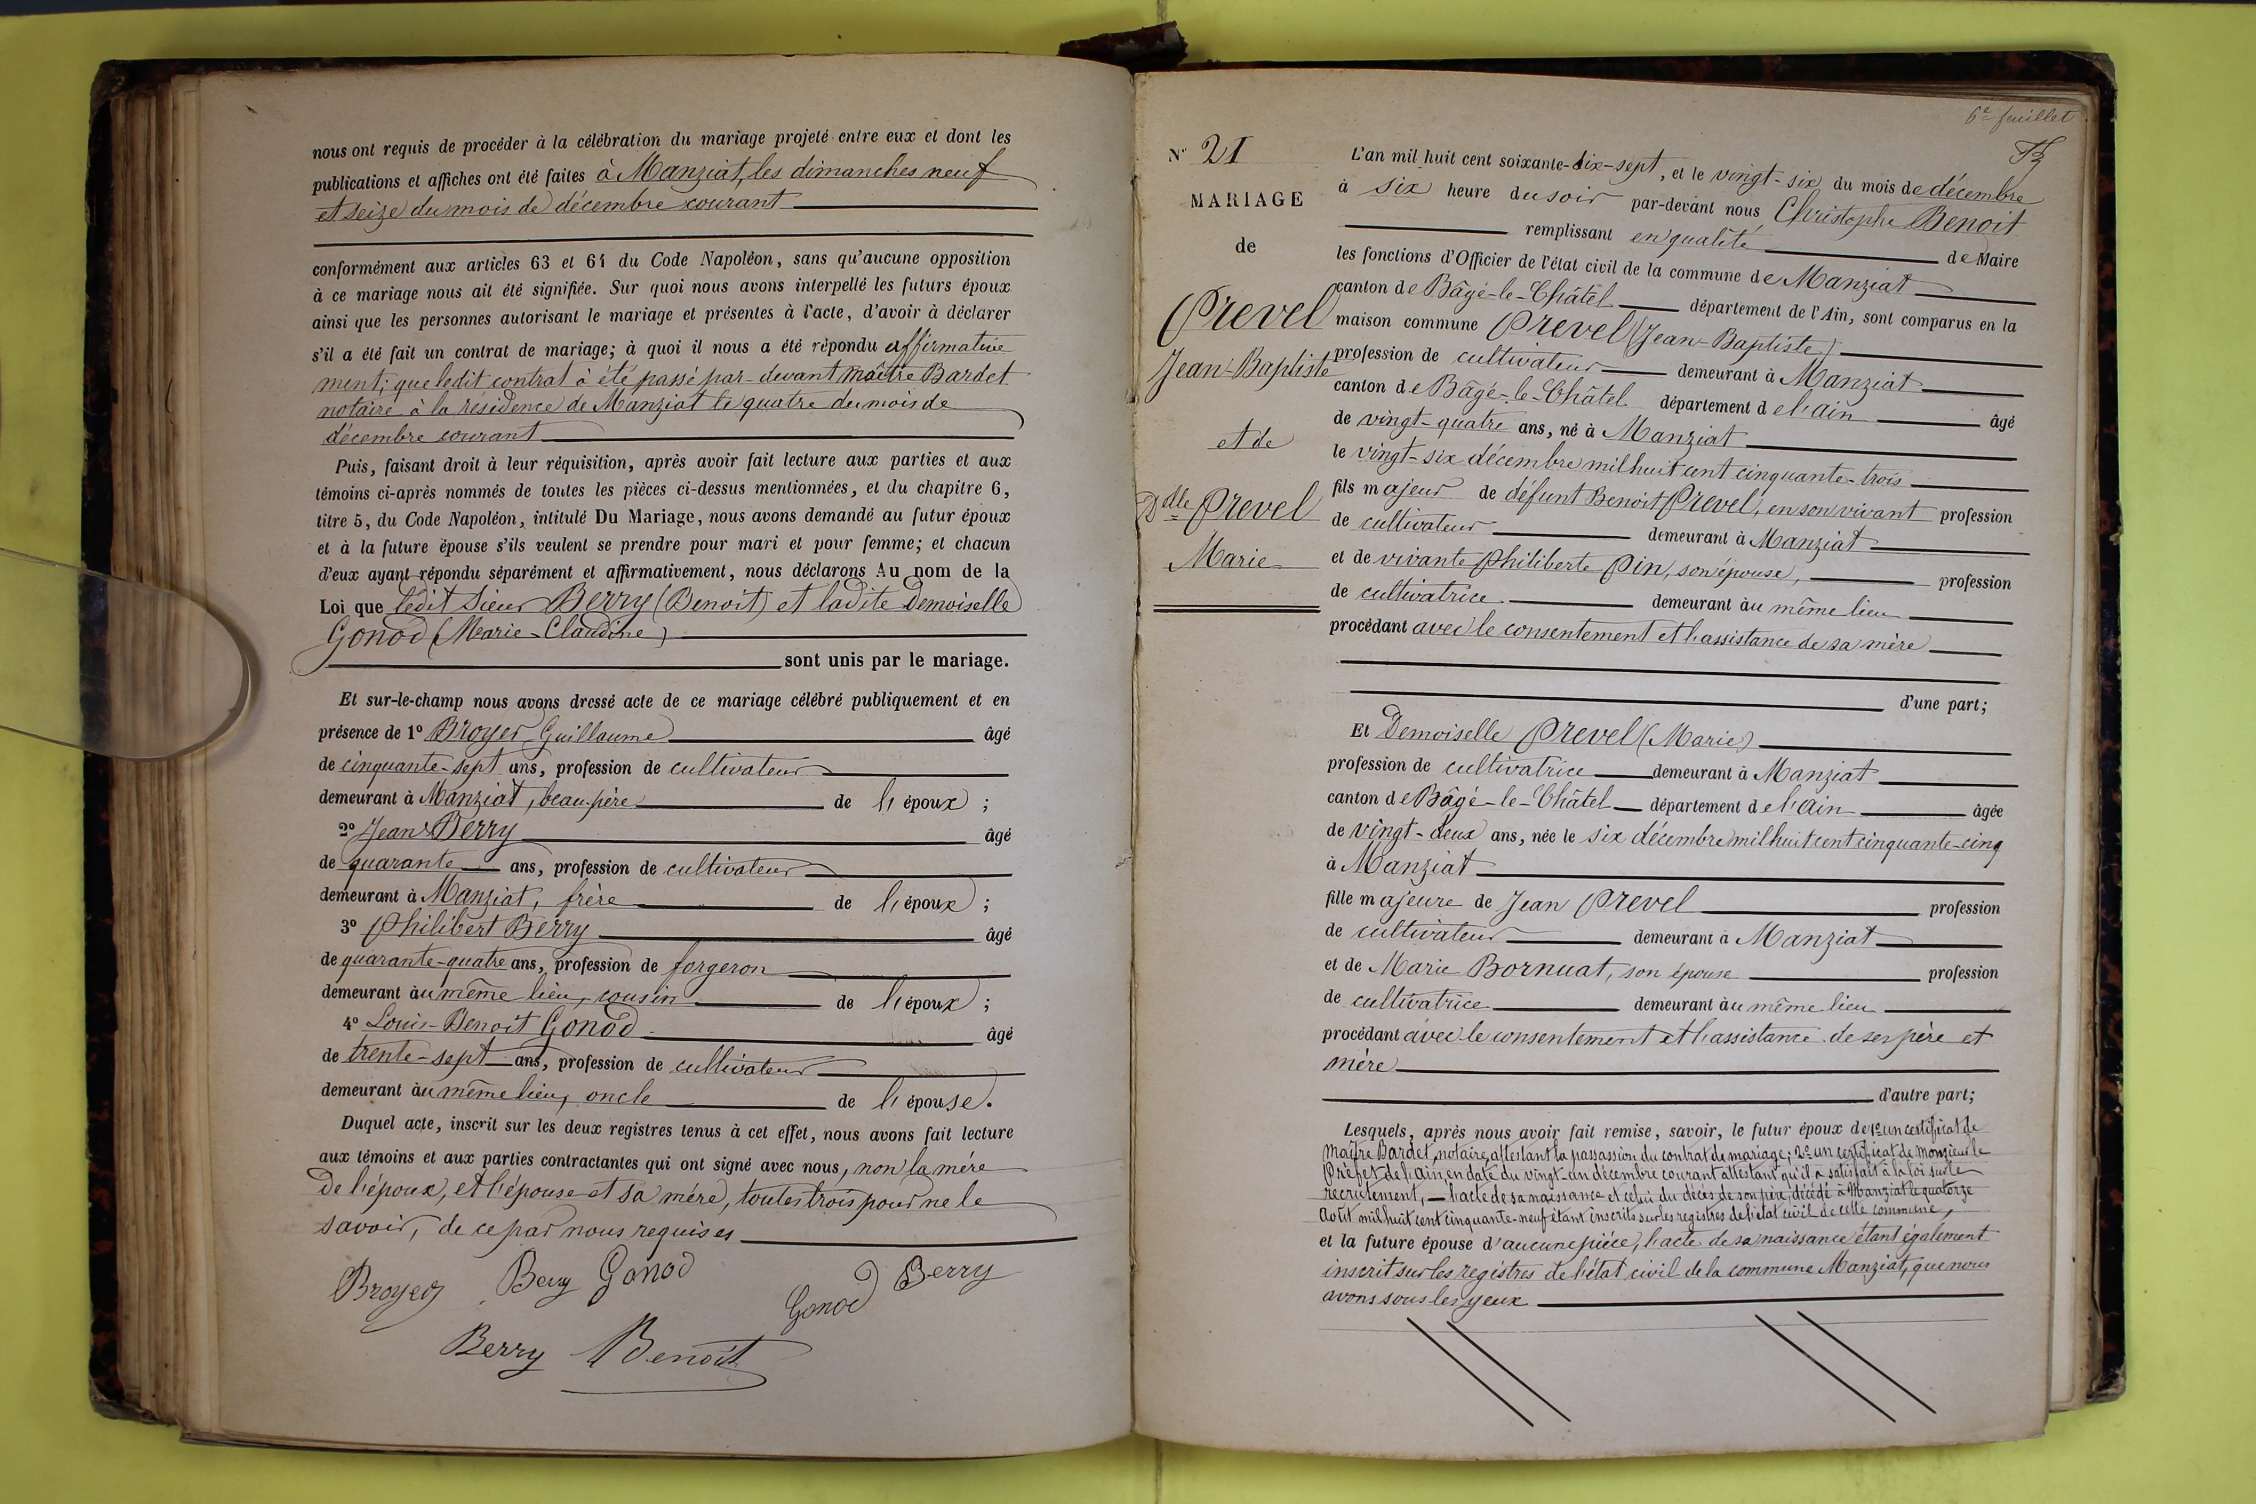 nous ont requis de procéder à la célébration du mariage projeté entre eux et dont les
publications et affiches ont été faites à Manziat, les dimanches neuf
et seize du mois de décembre courant
conformément aux articles 63 et 64 du Code Napoléon, sans qu'aucune opposition
à ce mariage nous ait été signifiée. Sur quoi nous avons interpellé les futurs époux
ainsi que les personnes autorisant le mariage et présentes à l'acte, d'avoir à déclarer
s'il a été fait un contrat de mariage; à quoi il nous a été répondu affirmative
ment; que ledit contrat à été passé par-devant maître Bardet
notaire à la résidence de Manziat le quatre du mois de
décembre courant
Puis, faisant droit à leur réquisition, après avoir fait lecture aux parties et aux
témoins ci-après nommés de toutes les pièces ci-dessus mentionnées, et du chapitre 6,
titre 5, du Code Napoléon, intitulé Du Mariage, nous avons demandé au futur époux
et à la future épouse s'ils veulent se prendre pour mari et pour femme; et chacun
d'eux ayant répondu séparément et affirmativement, nous déclarons Au nom de la
Loi que ledit Sieur Berry (Benoit) et ladite Demoiselle
Gonod (Marie-Claudine)
sont unis par le mariage.
Et sur-le-champ nous avons dressé acte de ce mariage célébré publiquement et en
présence de 1° Broyer Guillaume âgé
de cinquante-sept ans, profession de cultivateur
demeurant à Manziat, beau-père de l'époux;
2° Jean Berry âgé
de quarante ans, profession de cultivateur
demeurant à Manziat, frère de l'époux;
3° Philibert Berry âgé
de quarante-quatre ans, profession de forgeron
demeurant au même lieu, cousin de l'époux;
4° Louis-Benoit Gonod âgé
de trente-sept ans, profession de cultivateur
demeurant au même lieu, oncle de l'épouse.
Duquel acte, inscrit sur les deux registres tenus à cet effet, nous avons fait lecture
aux témoins et aux parties contractantes qui ont signé avec nous, non la mère
de l'époux, et l'épouse et sa mère, toutes trois pour ne le
savoir, de ce par nous requises
Broyer Berry Gonod Gonod Berry
Berry Benoit
6e feuillet
N° 21
MARIAGE
de
Prevel
Jean-Baptiste
et de
Dlle Prevel
Marie
L'an mil huit cent soixante-dix-sept, et le vingt-six du mois de décembre
à six heure du soir par-devant nous Christophe Benoit
remplissant en qualité de Maire
les fonctions d'Officier de l'état civil de la commune de Manziat
canton de Bâgé-le-Châtel département de l'Ain, sont comparus en la
maison commune Prevel (Jean-Baptiste)
profession de cultivateur demeurant à Manziat
canton de Bâgé-le-Châtel département de l'ain âgé
de vingt-quatre ans, né à Manziat
le vingt-six décembre mil huit cent cinquante-trois
fils majeur de défunt Benoit Prevel, en son vivant profession
de cultivateur demeurant à Manziat
et de vivante Philiberte Pin, son épouse, profession
de cultivatrice demeurant au même lieu
procédant avec le consentement et l'assistance de sa mère
d'une part;
Et Demoiselle Prevel (Marie)
profession de cultivatrice demeurant à Manziat
canton de Bâgé-le-Châtel département de l'ain âgée
de vingt-deux ans, née le six décembre mil huit cent cinquante-cinq
à Manziat
fille majeure de Jean Prevel profession
de cultivateur demeurant à Manziat
et de Marie Bornuat, son épouse profession
de cultivatrice demeurant au même lieu
procédant avec le consentement et l'assistance de ses père et
mère
d'autre part;
Lesquels, après nous avoir fait remise, savoir, le futur époux de 1° un certificat de
maître Bardet, notaire, attestant la passassion du contrat de mariage; 2° un certificat de monsieur le
Préfet de l'ain, en date du vingt-un décembre courant attestant qu'il a satisfait à la loi sur le
recrutement, — l'acte de sa naissance et celui du décès de son père, décédé à Manziat le quatorze
août mil huit cent cinquante-neuf étant inscrits sur les registres de l'état civil de cette commune,
et la future épouse d'aucune pièce, l'acte de sa naissance étant également
inscrit sur les registres de l'état civil de la commune Manziat, que nous
avons sous les yeux